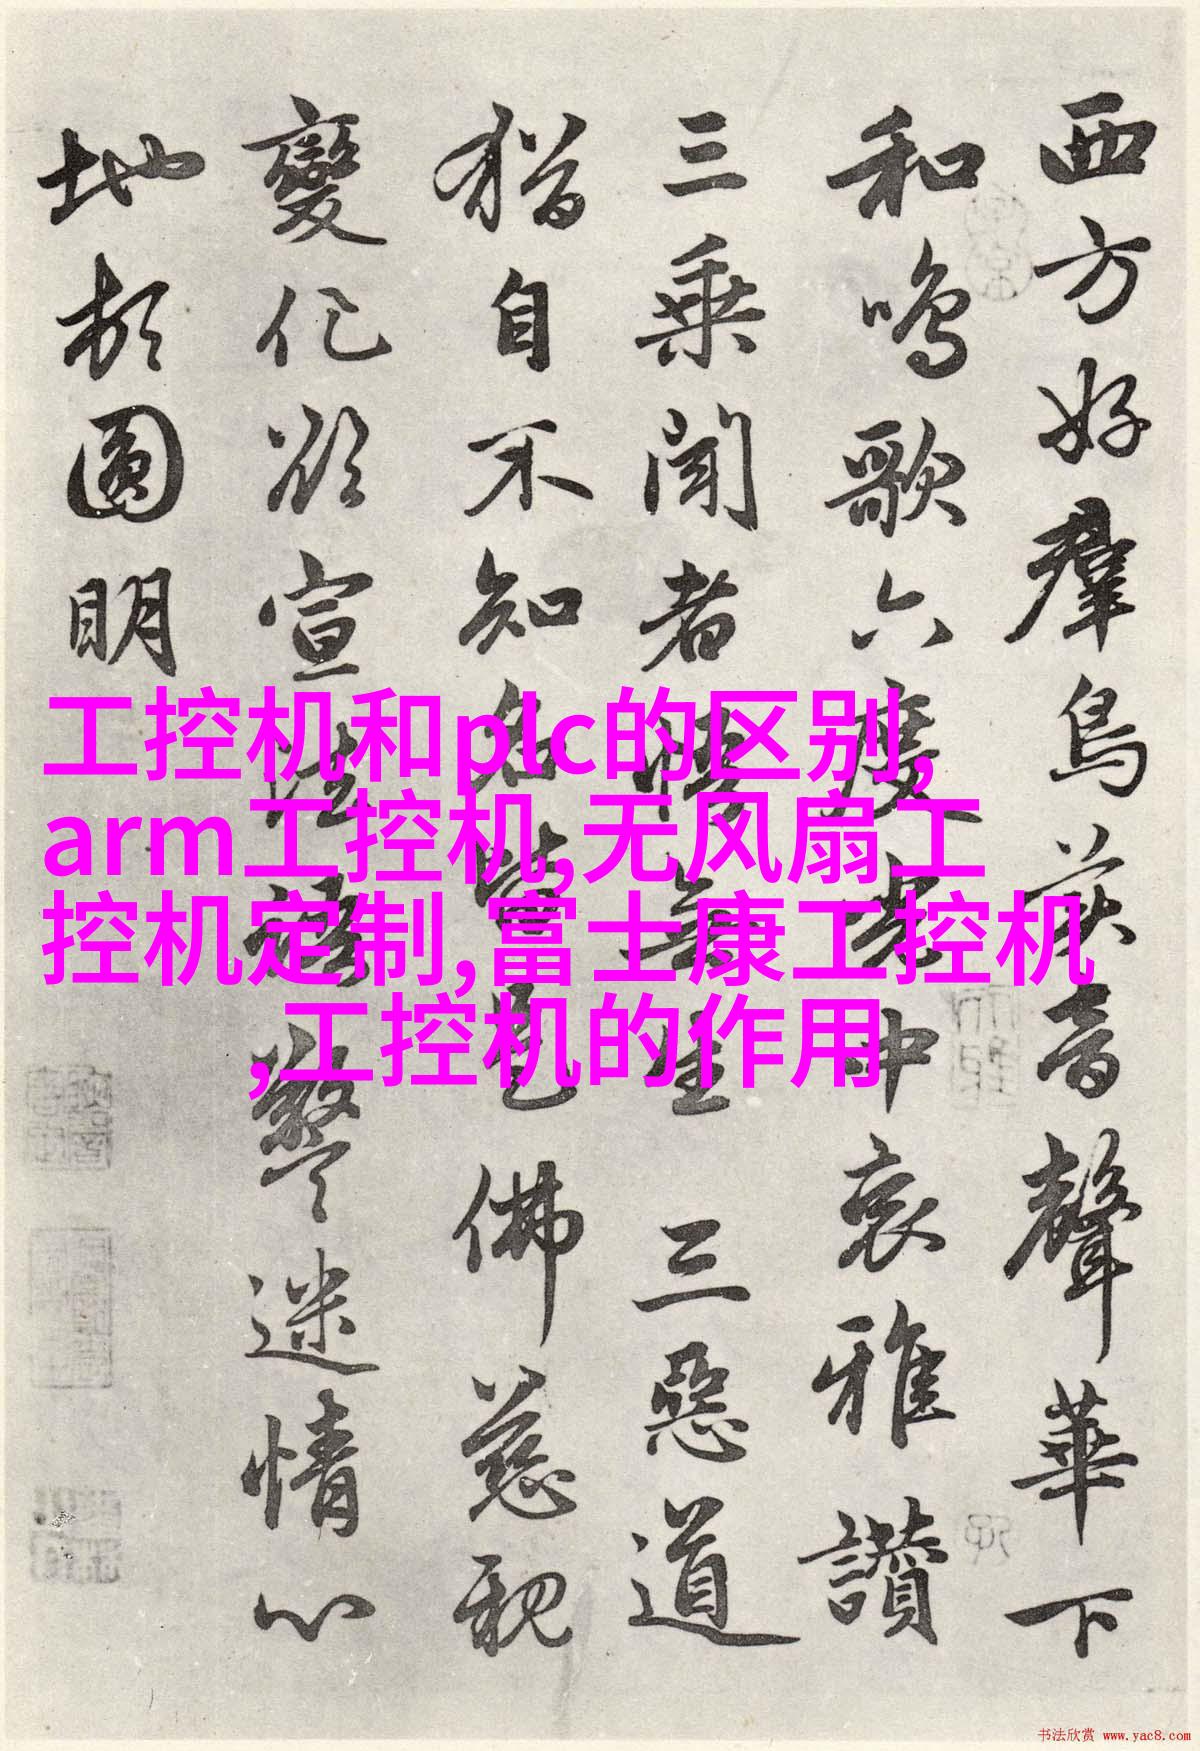 西方好羣鳥美音聲華下
和鳴歌六度光中哀雅讚
三乘聞者悟無生三惡道
猶自不知名皆是佛慈親
變化欲宣法語警迷情心
地頓圓明
工控机和plc的区别,
arm工控机,无风扇工
控机定制,富士康工控机
,工控机的作用
书法欣赏 www.yac8.com